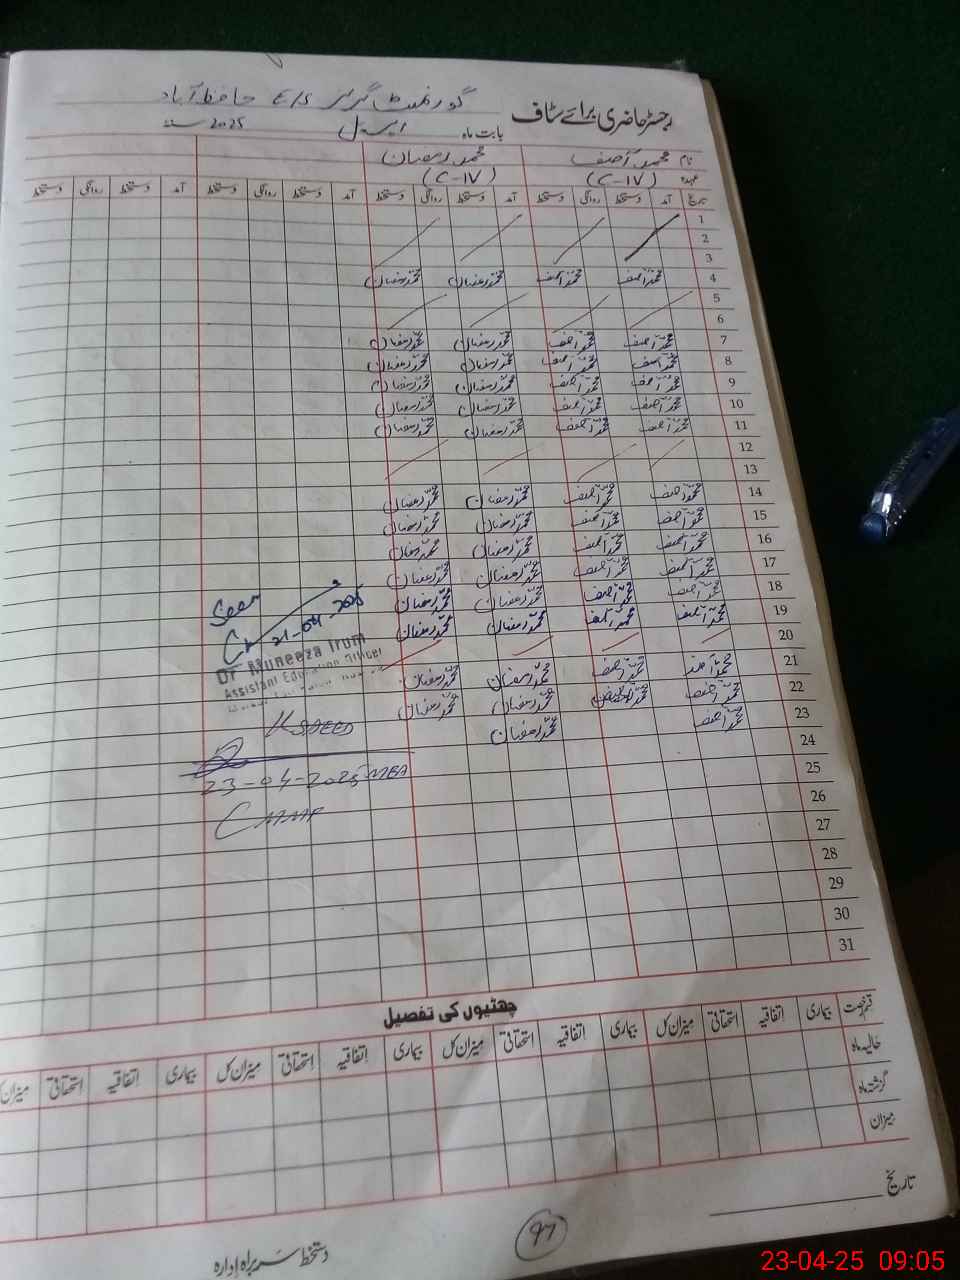 رجسٹر حاضری برائے سٹاف گورنمنٹ گرلز E/S حافظ آباد
بابت ماہ اپریل 2025 سنہ
نام محمد آصف محمد رمضان
عہدہ (C-IV) (C-IV)
تاریخ آمد دستخط روانگی دستخط آمد دستخط روانگی دستخط آمد دستخط روانگی دستخط آمد دستخط روانگی دستخط
1
2
3
4 محمد آصف محمد آصف محمد رمضان محمد رمضان
5
6
7 محمد آصف محمد آصف محمد رمضان محمد رمضان
8 محمد آصف محمد آصف محمد رمضان محمد رمضان
9 محمد آصف محمد آصف محمد رمضان محمد رمضان
10 محمد آصف محمد آصف محمد رمضان محمد رمضان
11 محمد آصف محمد آصف محمد رمضان محمد رمضان
12
13
14 محمد آصف محمد آصف محمد رمضان محمد رمضان
15 محمد آصف محمد آصف محمد رمضان محمد رمضان
16 محمد آصف محمد آصف محمد رمضان محمد رمضان
17 محمد آصف محمد آصف محمد رمضان محمد رمضان
18 محمد آصف محمد آصف محمد رمضان محمد رمضان
19 محمد آصف محمد آصف محمد رمضان محمد رمضان
20
21 محمد آصف محمد آصف محمد رمضان محمد رمضان
22 محمد آصف محمد آصف محمد رمضان محمد رمضان
23 محمد آصف محمد رمضان
24
25
26
27
28
29
30
31
Seen
21-04-2025
Dr Muneeza Irum
Assistant Education Officer
23-04-2025 MEA
چھٹیوں کی تفصیل
قسم رخصت بیماری اتفاقیہ استحقاقی میزان کل بیماری اتفاقیہ استحقاقی میزان کل بیماری اتفاقیہ استحقاقی میزان کل بیماری اتفاقیہ استحقاقی میزان
حالیہ ماہ
گزشتہ ماہ
میزان
تاریخ
دستخط سربراہ ادارہ
97
23-04-25 09:05